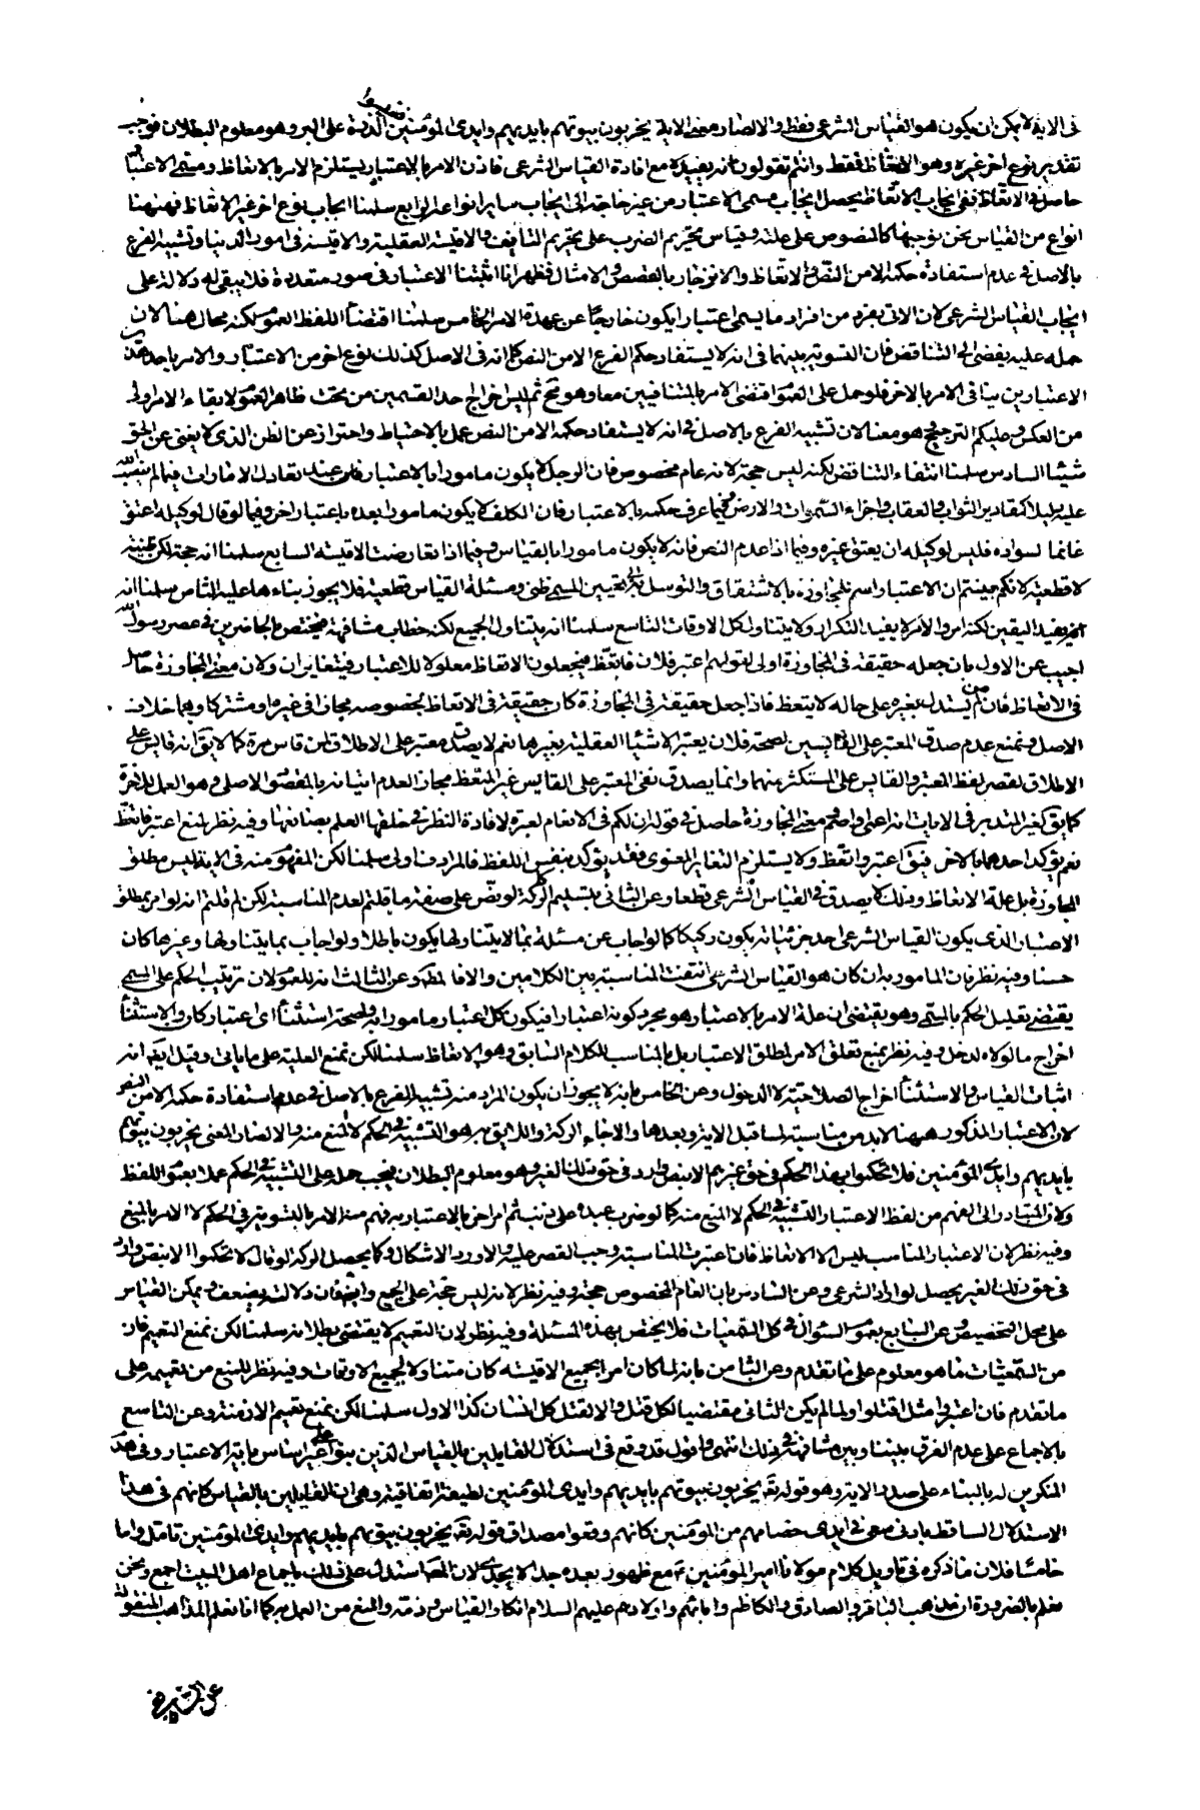 فى الاية لا يمكن ان يكون هو القياس الشرعى فقط والا لصار معنى الاية يخربون بيوتهم بايديهم وايدى المؤمنين الذرة على البر وهو معلوم البطلان فوجب
تقدير نوع اخر غيره وهو الاتعاظ فقط وانتم تقولون انه يفيده مع افادة القياس الشرعى فاذن الامر بالاعتبار يستلزم الامر بالاتعاظ ومسمى الاعتبار
حاصل فى الاتعاظ ففى ايجاب الاتعاظ يحصل ايجاب مسمى الاعتبار من غير حاجة الى ايجاب ساير انواعه الرابع سلمنا ايجاب نوع اخر غير الاتعاظ فههنا
انواع من القياس نحن نوجبها كالمنصوص على علته وقياس تحريم الضرب على تحريم التافيف والاقيسة العقلية والاقيسة فى امور الدنيا وتشبيه الفرع
بالاصل فى عدم استفادة حكمه الا من النص والاتعاظ والانزجار بالقصص والامثال فظهر انا اثبتنا الاعتبار فى صور متعددة فلا يبقى له دلالة على
ايجاب القياس الشرعى لان الاتى بفرد من افراد ما يسمى اعتبارا يكون خارجا عن عهدة الامر الخامس سلمنا اقتضاء اللفظ العموم لكنه محال هنا لان
حمله عليه يفضى الى التناقض فان التسوية بينهما فى انه لا يستفاد حكم الفرع الا من النص كما انه فى الاصل كذلك نوع اخر من الاعتبار والامر باحد هذين
الاعتبارين ينافى الامر بالاخر فلو حمل على العموم اقتضى الامر بالمتنافيين معا وهو مح ثم ليس اخراج احد القسمين من تحت ظاهر العموم لابقاء الامر اولى
من العكس وعليكم الترجيح وهو معنا لان تشبيه الفرع بالاصل فى انه لا يستفاد حكمه الا من النص عمل بالاحتياط واحتراز عن الظن الذى لا يغنى عن الحق
شيئا السادس سلمنا انتفاء التناقض لكنه ليس حجة لانه عام مخصوص فان الرجل لا يكون مامورا بالاعتبار عند تعادل الامارات فيما لم ينصب الله
عليه دليلا كمقادير الثواب والعقاب واجزاء السموات والارض وفيما عرف حكمه بالاعتبار فان المكلف لا يكون مامورا بعده باعتبار اخر وفيما لو قال لوكيله اعتق
غانما لسواده فليس لوكيله ان يعتق غيره وفيما اذا عدم النص فانه لا يكون مامورا بالقياس وفيما اذا تعارضت الاقيسة السابع سلمنا انه حجة لكن ظنية
لا قطعية لانكم بينتم ان الاعتبار اسم للمجاوزة بالاشتقاق والتوسل به الى تعيين المسمى ظنى ومسئلة القياس قطعية فلا يجوز بناءها عليه الثامن سلمنا انه
امر يفيد اليقين لكنه امر والامر لا يفيد التكرار ولا يتناول كل الاوقات التاسع سلمنا انه يتناول الجميع لكنه خطاب مشافهة فيختص بالحاضرين فى عصر رسول الله
اجيب عن الاول بان جعله حقيقة فى المجاوزة اولى لقولهم اعتبر فلان فاتعظ فيجعلون الاتعاظ معلولا للاعتبار فيتغايران ولان معنى المجاوزة حاصل
فى الاتعاظ فان من لم يستدل بغيره على حاله لا يتعظ فاذا جعل حقيقة فى المجاوزة كان حقيقة فى الاتعاظ بخصوصه مجازا فى غيره او مشتركا وهما خلاف
الاصل ونمنع عدم صدق المعتبر على القايسين لصحة فلان يعتبر الاشياء العقلية بغيرها نعم لا يصدق معتبر على الاطلاق لمن قاس مرة كما لا يق انه قايس على
الاطلاق لقصر لفظ المعتبر والقايس على المستكثر منهما وانما يصدق نفى المعتبر على القايس غير المتعظ مجازا لعدم اتيانه بالمقصود الاصلى وهو العمل للاخرة
كما يق لغير المتدبر فى الايات انه اعمى واصم ومعنى المجاوزة حاصل فى قوله ان لكم فى الانعام لعبرة لافادة النظر فى خلقها العلم بصانعها وفيه نظر لمنع اعتبر فاتعظ
نعم يؤكد احدهما بالاخر فيق اعتبر واتعظ ولا يستلزم التغاير المعنوى فقد يؤكد بنفس اللفظ فالمرادف اولى سلمنا لكن المفهوم منه فى الاية ليس مطلق
المجاوزة بل علة الاتعاظ وذلك لا يصدق فى القياس الشرعى قطعا وعن الثانى بتسليم الركة لو نص على صفة ما قلتم لعدم المناسبة لكن لم قلتم انه لو امر بمطلق
الاعتبار الذى يكون القياس الشرعى احد جزئياته يكون ركيكا كما لو اجاب عن مسئلة بما لا يتناولها يكون باطلا ولو اجاب بما يتناولها وغيرها كان
حسنا وفيه نظر فان المامور به ان كان هو القياس الشرعى انتفت المناسبة بين الكلامين والا فالمط وعن الثالث انه للعموم لان ترتيب الحكم على المسمى
يقتضى تعليل الحكم بالمسمى وهو يقتضى ان علة الامر بالاعتبار هو مجرد كونه اعتبارا فيكون كل اعتبار مامورا به ولصحة استثناء اى اعتبار كان والاستثناء
اخراج ما لولاه لدخل وفيه نظر بمنع تعلق الامر بمطلق الاعتبار بل بالمناسب للكلام السابق وهو الاتعاظ سلمنا لكن نمنع العلية على ما ياتى وقيل ايضا انه
اثبات القياس والاستثناء اخراج الصلاحية لا الدخول وعن الخامس بانه لا يجوز ان يكون المراد منه تشبيه الفرع بالاصل فى عدم استفادة حكمه الا من النص
لان الاعتبار المذكور ههنا لابد من مناسبته لما قبل الاية وبعدها والا جاء الركة واللايق به هو التشبيه فى الحكم لا المنع منه والا لصار المعنى يخربون بيوتهم
بايديهم وايدى المؤمنين فلا تحكموا بهذا الحكم فى حق غيرهم الا بنص وارد فى حق ذلك الغير وهو معلوم البطلان فيجب حمله على التشبيه فى الحكم عملا بعموم اللفظ
ولان المتبادر الى الفهم من لفظ الاعتبار التشبيه فى الحكم لا المنع منه كما لو ضرب عبده على ذنب ثم امر اخر بالاعتبار به فهم منه الامر بالتسوية فى الحكم لا الامر بالمنع
وفيه نظر لان الاعتبار المناسب ليس الا الاتعاظ فان اعتبرت المناسبة وجب القصر عليه والا ورد الاشكال وكما يحصل الركة لو قال لا تحكموا الا بنص وارد
فى حق ذلك الغير يحصل لو اراد الشرعى وعن السادس بان العام المخصوص حجة وفيه نظر لانه ليس حجة على الجميع وايضا فان دلالته يضعف ويمكن القياس
على محل التخصيص وعن السابع بعموم السؤال فى كل السمعيات فلا يختص بهذه المسئلة وفيه نظر لان التعميم لا يقتضى بطلانه سلمنا لكن نمنع التعميم فان
من السمعيات ما هو معلوم على ما تقدم وعن الثامن بانه لما كان امرا بجميع الاقيسة كان متناولا لجميع الاوقات وفيه نظر للمنع من التعميم على
ما تقدم فان اعتبروا مثل اقتلوا ولما لم يكن الثانى مقتضيا لكل قتل والا لقتل كل انسان كذا الاول سلمنا لكن نمنع تعميم الازمنة وعن التاسع
بالاجماع على عدم الفرق بيننا وبين مشافهته فى ذلك انتهى واقول قد وقع فى استدلال القايلين بالقياس الذين بنوا على غير اساس باية الاعتبار وفى هدم
المنكرين له بالبناء على صدر الاية وهو قوله تعه يخربون بيوتهم بايديهم وايدى المؤمنين لطيفة اتفاقية وهى ان القايلين بالقياس كانهم فى هذا
الاستدلال الساقط بادنى سعى فى ايدى خصامهم من المؤمنين كانهم وقعوا مصداق قوله تعه يخربون بيوتهم بايديهم وايدى المؤمنين تامل واما
خامسا فلان ما ذكره فى تاويل كلام مولانا امير المؤمنين ع مع ظهور بعده جدا لا يجدى لان المص استدل على ذلك باجماع اهل البيت اجمع ونحن
نعلم بالضرورة ان مذهب الباقر والصادق والكاظم وابائهم واولادهم عليهم السلام انكار القياس وذمه والمنع من العمل به كما انا نعلم المذاهب المنقولة